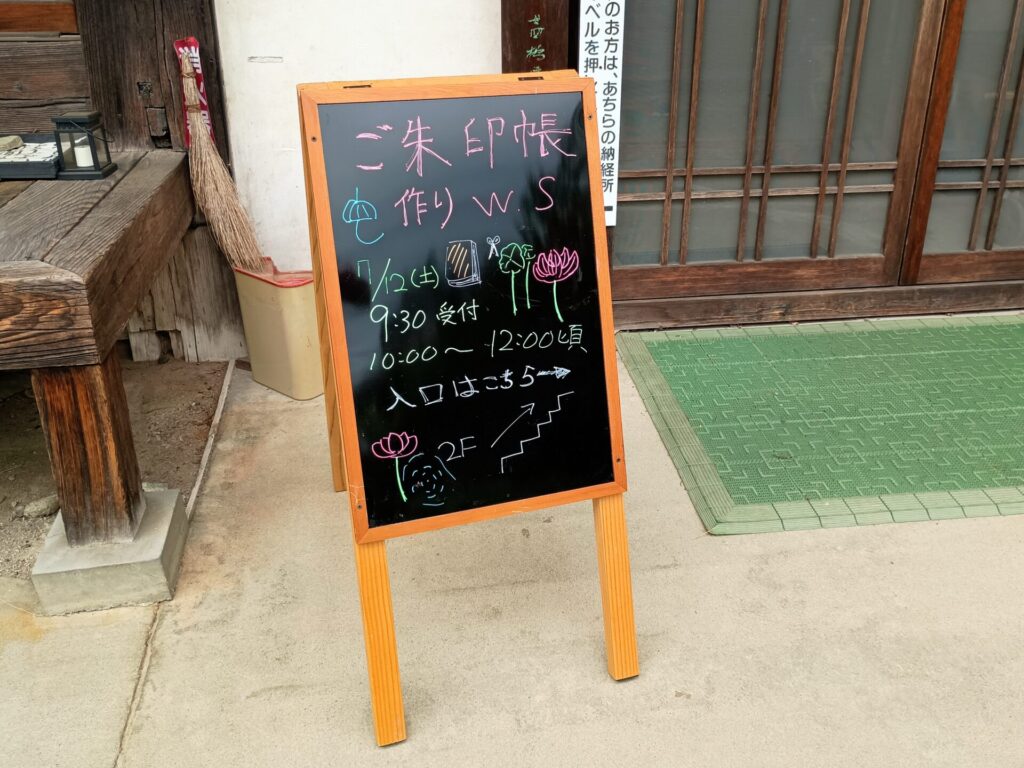 ご朱印帳
作り W.S
7/12(土)
9:30 受付
10:00〜12:00頃
入口はこちら→
2F
のお方は、あちらの納経所
ベルを押